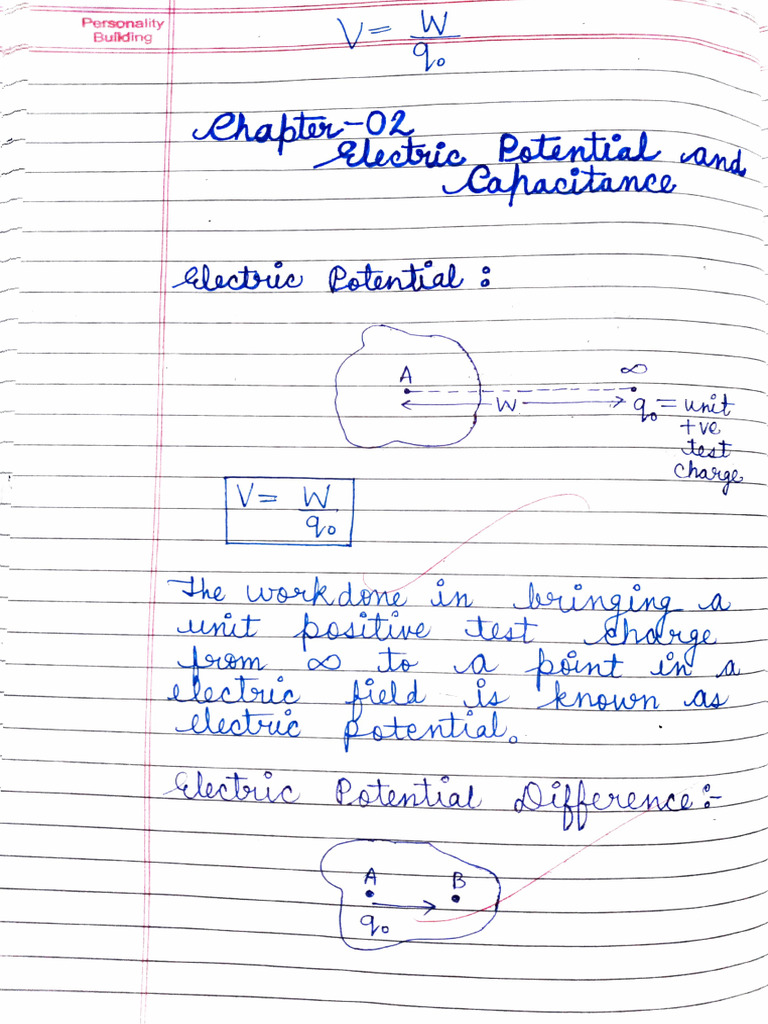 Personality
Building
V = W/q₀
Chapter-02
Electric Potential and
Capacitance
Electric Potential :
A
∞
W
q₀ = unit
+ve
test
charge
V = W/q₀
The workdone in bringing a
unit positive test charge
from ∞ to a point in a
electric field is known as
electric potential.
Electric Potential Difference:-
A B
q₀